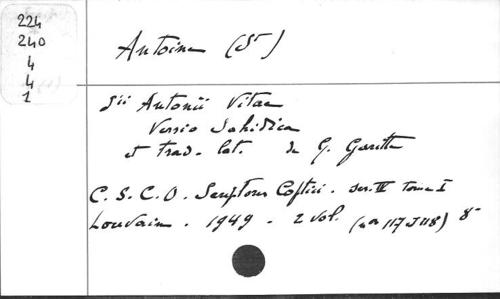 224
240
4
4
1
Antoine (St)
Sti Antonii Vitae
Versio Sahidica
et trad. lat. de G. Garitte
C. S. C. O. Scriptores Coptici. ser. IV Tome I
Louvain. 1949 - 2 vol. (nos 117 et 118) 8°